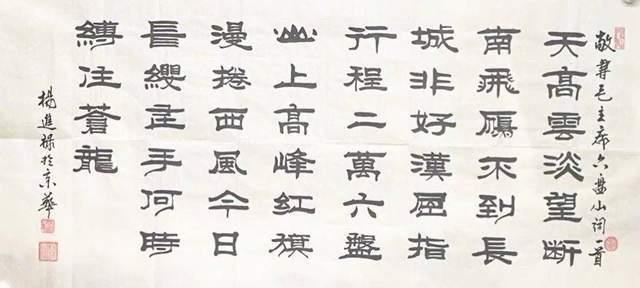 敬書毛主席六盤山詞一首
天高雲淡望断
南飛鴈不到長
城非好漢屈指
行程二萬六盤
山上高峰紅旗
漫捲西風今日
長纓在手何時
縛住蒼龍
楊進禄於京華